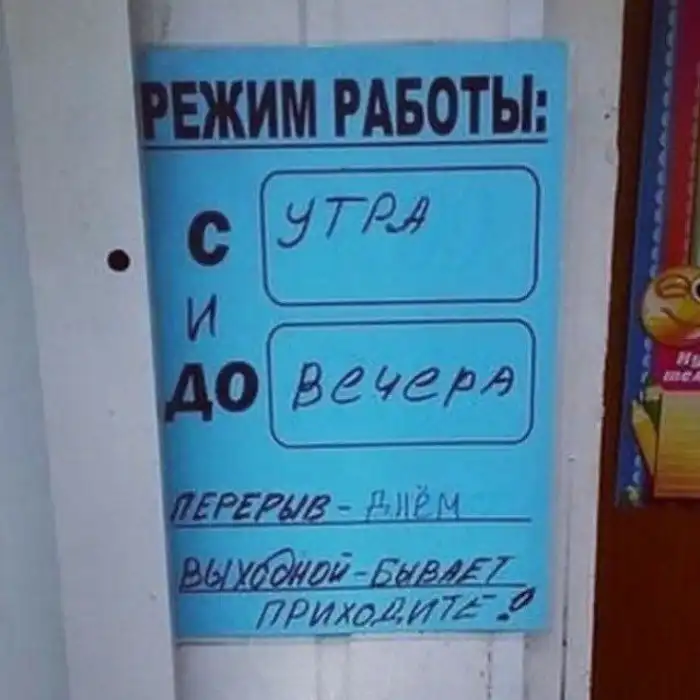 РЕЖИМ РАБОТЫ:
С УТРА
И
ДО ВЕЧЕРА
ПЕРЕРЫВ - ДНЁМ
ВЫХОДНОЙ - БЫВАЕТ
ПРИХОДИТЕ!